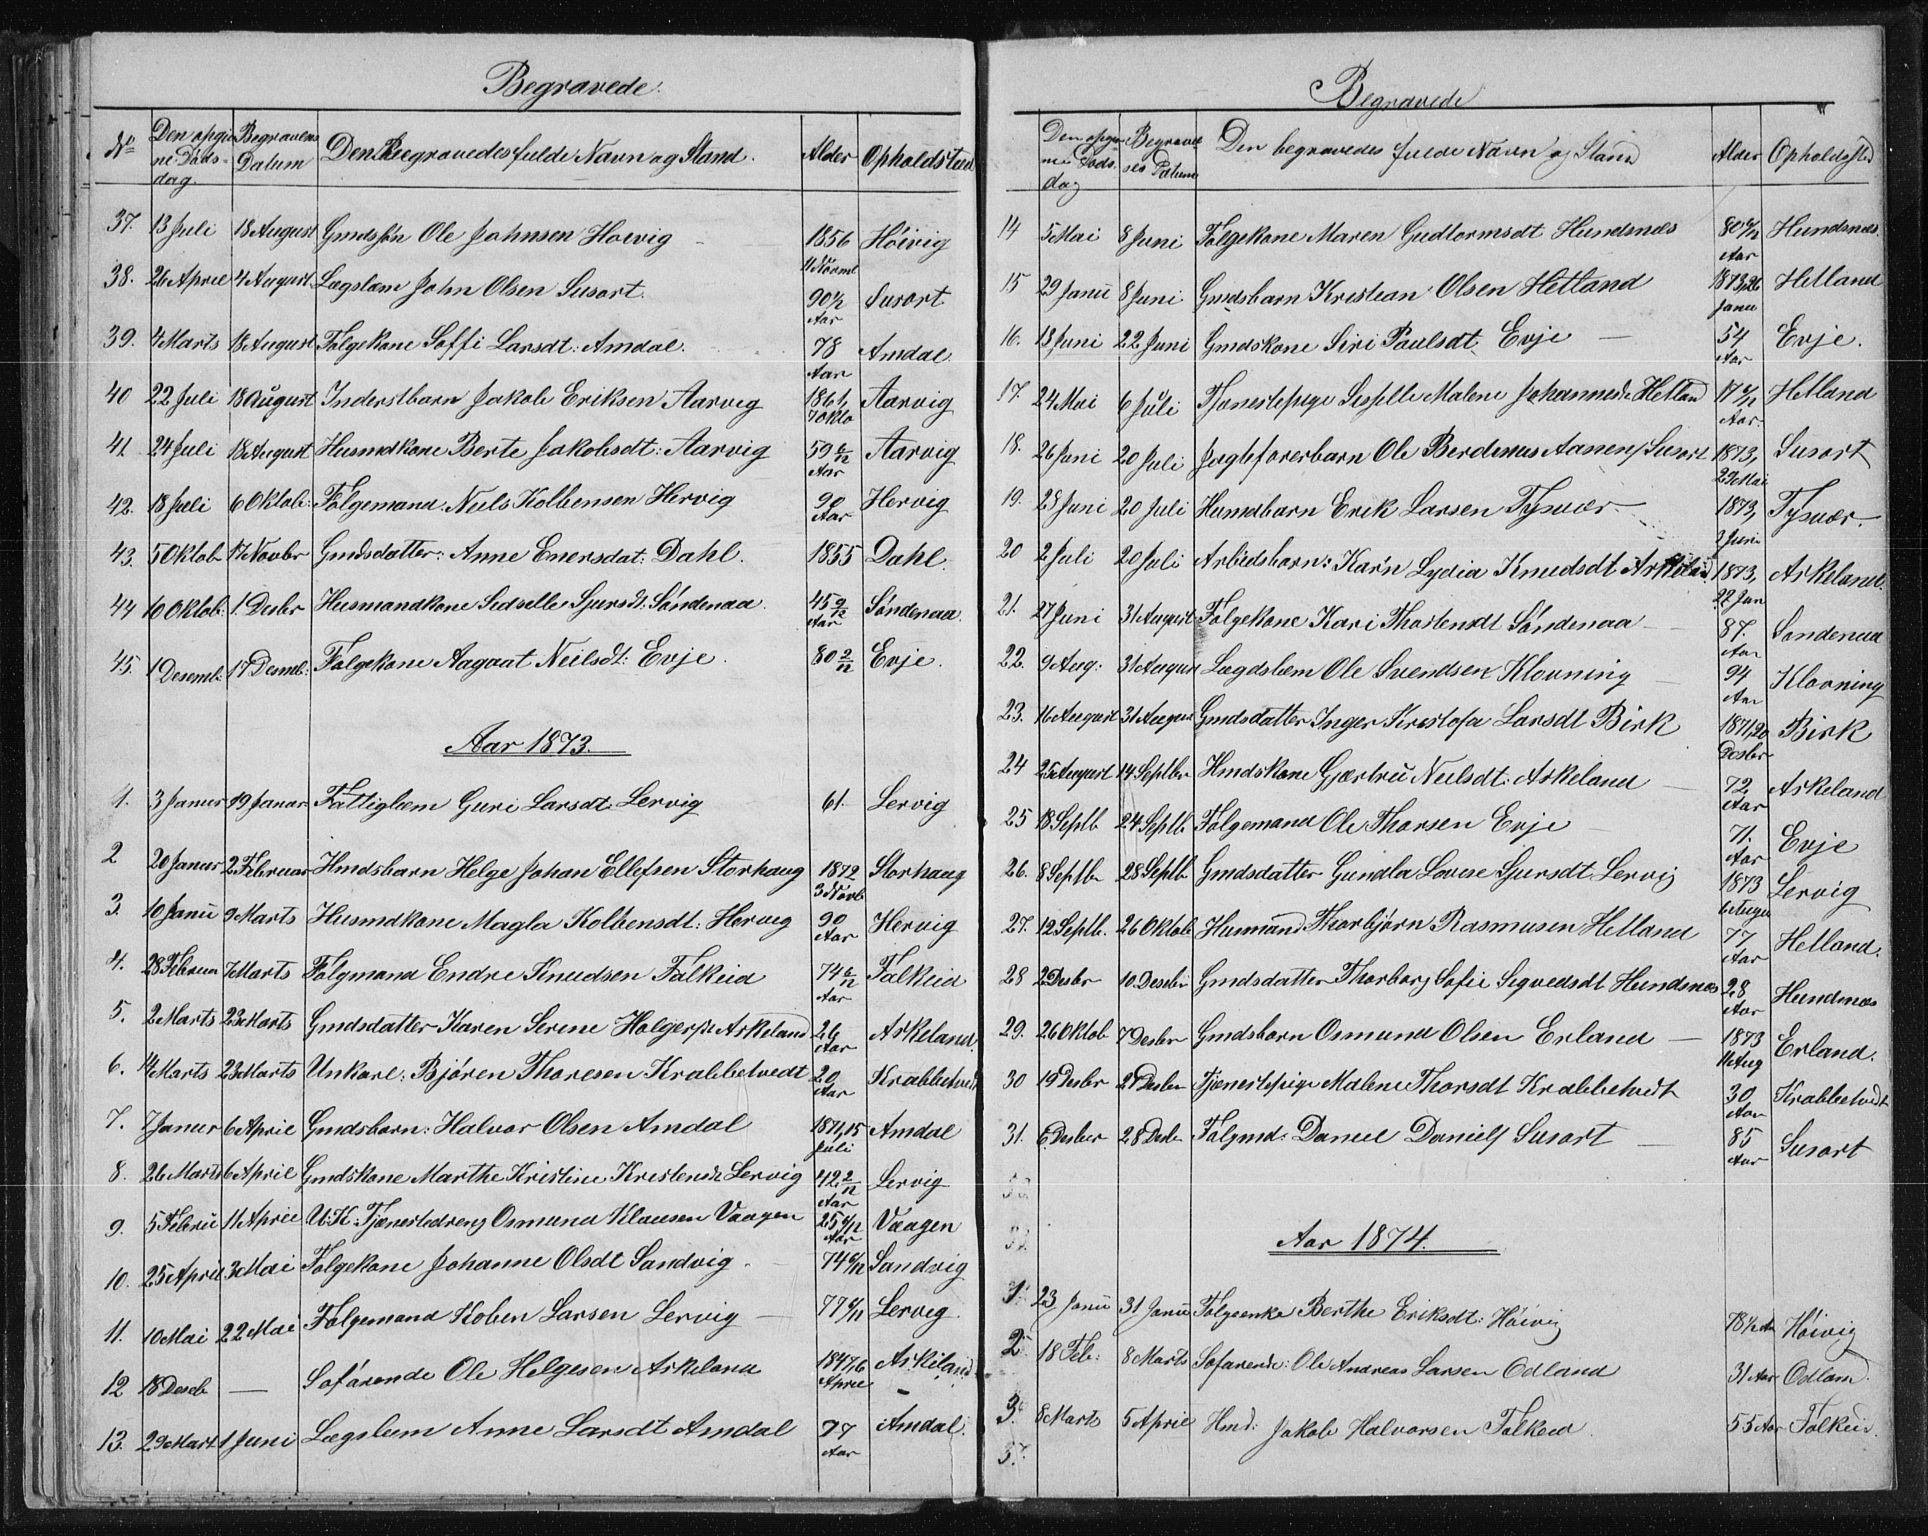 Begravede.
No Den opgivne Døds-dag. Begravens Datum Den Begravedes fulde Navn og Stand. Alder Opholdsted
37. 13 Juli 18 August Gmdssøn Ole Johnsen Hoivig 1856 11 Novmb Höivig
38. 26 April 4 August Lægslam John Olsen Susort. 90½ Aar Susort
39. 4 Marts 18 August Folgekone Soffi Larsdt: Amdal. 78 Aar Amdal
40 22 Juli 18 August Inderstbarn Jakob Eriksen Aarvig 7 Okto Aarvig
41. 24 Juli 18 August Husmdkone Berte Jakobsdt: Aarvig 59 6/12 Aar Aarvig
42. 18 Juli 6 Oktob: Folgemand. Neils Kolbensen Hervig 90 Aar Hervig
43. 5 Oktob 17 Novbr Gmdsdatter: Anne Enersdat: Dahl. 1855 Dahl.
44 10 Oktob. 1. Desbr Husmandkone Sidselle Sjursdt. Söndenaa. 45 9/12 Aar Söndenaa.
45. 1 Desemb. 17 Desmb: Folgekone Aagaat Neilsdt: Evje. 80 2/12 Evje.
Aar 1873.
1. 3 Januar 19 Januar Fattiglem Guri Larsdt. Lervig 61. Lervig
2 20 Januar 2 Februar Hmdsbarn Helge Johan Ellefsen Storhaug 1872 3 Novb Storhaug
3. 10 Janu 9 Marts Husmdkone Magla Kolbensdt: Hervig 90 Aar Hervig
4. 28 Februa 7 Marts Folgmand Endre Knudsen Falkeid 74 6/12 Aar Falkeid
5. 2 Marts 23 Marts Gmdsdatter Karen Serine Holgersdt Askeland 26 Aar Askeland.
6. 4 Marts 23 Marts Unkarl: Björen Thoresen Krabbetvedt 20 Aar Krabbetvedt
7. 7 Januar 6 April Gmdsbarn: Halvor Olsen Amdal 1871, 15 Juli Amdal
8. 26 Marts 6 April Gmdskone Marthe Kristine Kristensdt Lervig 42 2/12 Aar Lervig
9. 5 Febru 11 April U:K: Tjenestedreng Osmund Klausen Vaagen 25 6/12 Aar Vaagen
10. 25 April 3 Mai Folgekone Johanne Olsdt Sandvig. 74 6/12 Sandvig
11. 10 Mai 22 Mai Folgemand Koben Larsen Lervig 77 6/12 Lervig
12 18 Desb — Soforende Ole Helgesen Askeland 1847, 6 April Askeland
13. 29 Mart 1 Juni Lægslem Anne Larsdt Amdal 77 Aar Amdal.
Begravede
Den opgivne Døds dag Begravelses Datum Den begravedes fulde Navn og Stand Alder Opholdssted
14 5 Mai 8 Juni Folgekone Maren Gudtormsdt Hundsnes 80 6/12 Aar Hundsnæs.
15 29 Janu 8 Juni Gmdsbarn Kristian Olsen Hetland 1873, 26 Janu Hetland
16. 13 Juni 22 Juni Gmdskone Siri Paulsdt. Evje 54 Aar Evje.
17. 24 Mai 6 Juli Tjenestepige Malene Johannesdt Hetland 17 6/12 Aar. Hetland
18. 26 Juni 20 Juli Ole Berdinus Aanens Susort 1873, 29 Mai Susort
19. 28 Juni 20 Juli Husmdbarn Erik Larsen Tysvær 1873, 2 Juni Tysvær.
20 2 Juli 20 Juli Arbedsbarn: Karn Lydia Knudsdt Askeland 1873, 22 Jan Askeland.
21. 27 Juni 31 August Folgekone Kari Thostensdt Söndenaa 87. Aar Sondenaa
22. 9 Aug: 31 August Lægdslem Ole Svendsen Klovning 94 Aar Klovning
23. 16 August 31 August Gmdsdatter Inger Kristofa Larsdt Birk 1871, 20 Desbr Birk
24 25 August 14 Septbr Hmdskone Gjærtru Neilsdt: Askeland 72 Aar Askeland
25 18 Septb. 24 Septb Folgemand Ole Thorsen Evje 71. Aar Evje
26. 8 Septbr 28 Septb Gmdsdatter Gundla Lovise Sjursdt. Lervig 1873 6 Augu Lervig
27. 12 Septb. 26 Oktob Husmand Thorbjørn Rasmusen Hetland 77 Aar Hetland.
28 2 Desbr 10. Desebr Gmdsdatter Thorborg Sofie Segvedsdt Hundsnes 28 Aar Hundsnæs
29. 26 Oktob 7 Desbr Gmdsbarn Osmund Olsen Erland 1873 11 Aug Erland.
30 19 Desbr 27 Desbr Tjenestepige Malene Thorsdt Krabbetvedt 30 Aar Krabbetvedt
31. 6 Desber 28 Desbr Folgmd: Daniel Daniels Susort 85 Aar Susort
Aar 1874.
1. 23 Janu 31 Janu Folgeenke Berthe Eriksdt: Höivig 78½ Aar Höivig
2 18 Feb: 8 Marts Sofarende: Ole Andreas Larsen Odland 31 Aar Odland
3. 8 Marts 5 April Hmd: Jakob Halvorsen Falkeid. 55 Aar Falkeid.